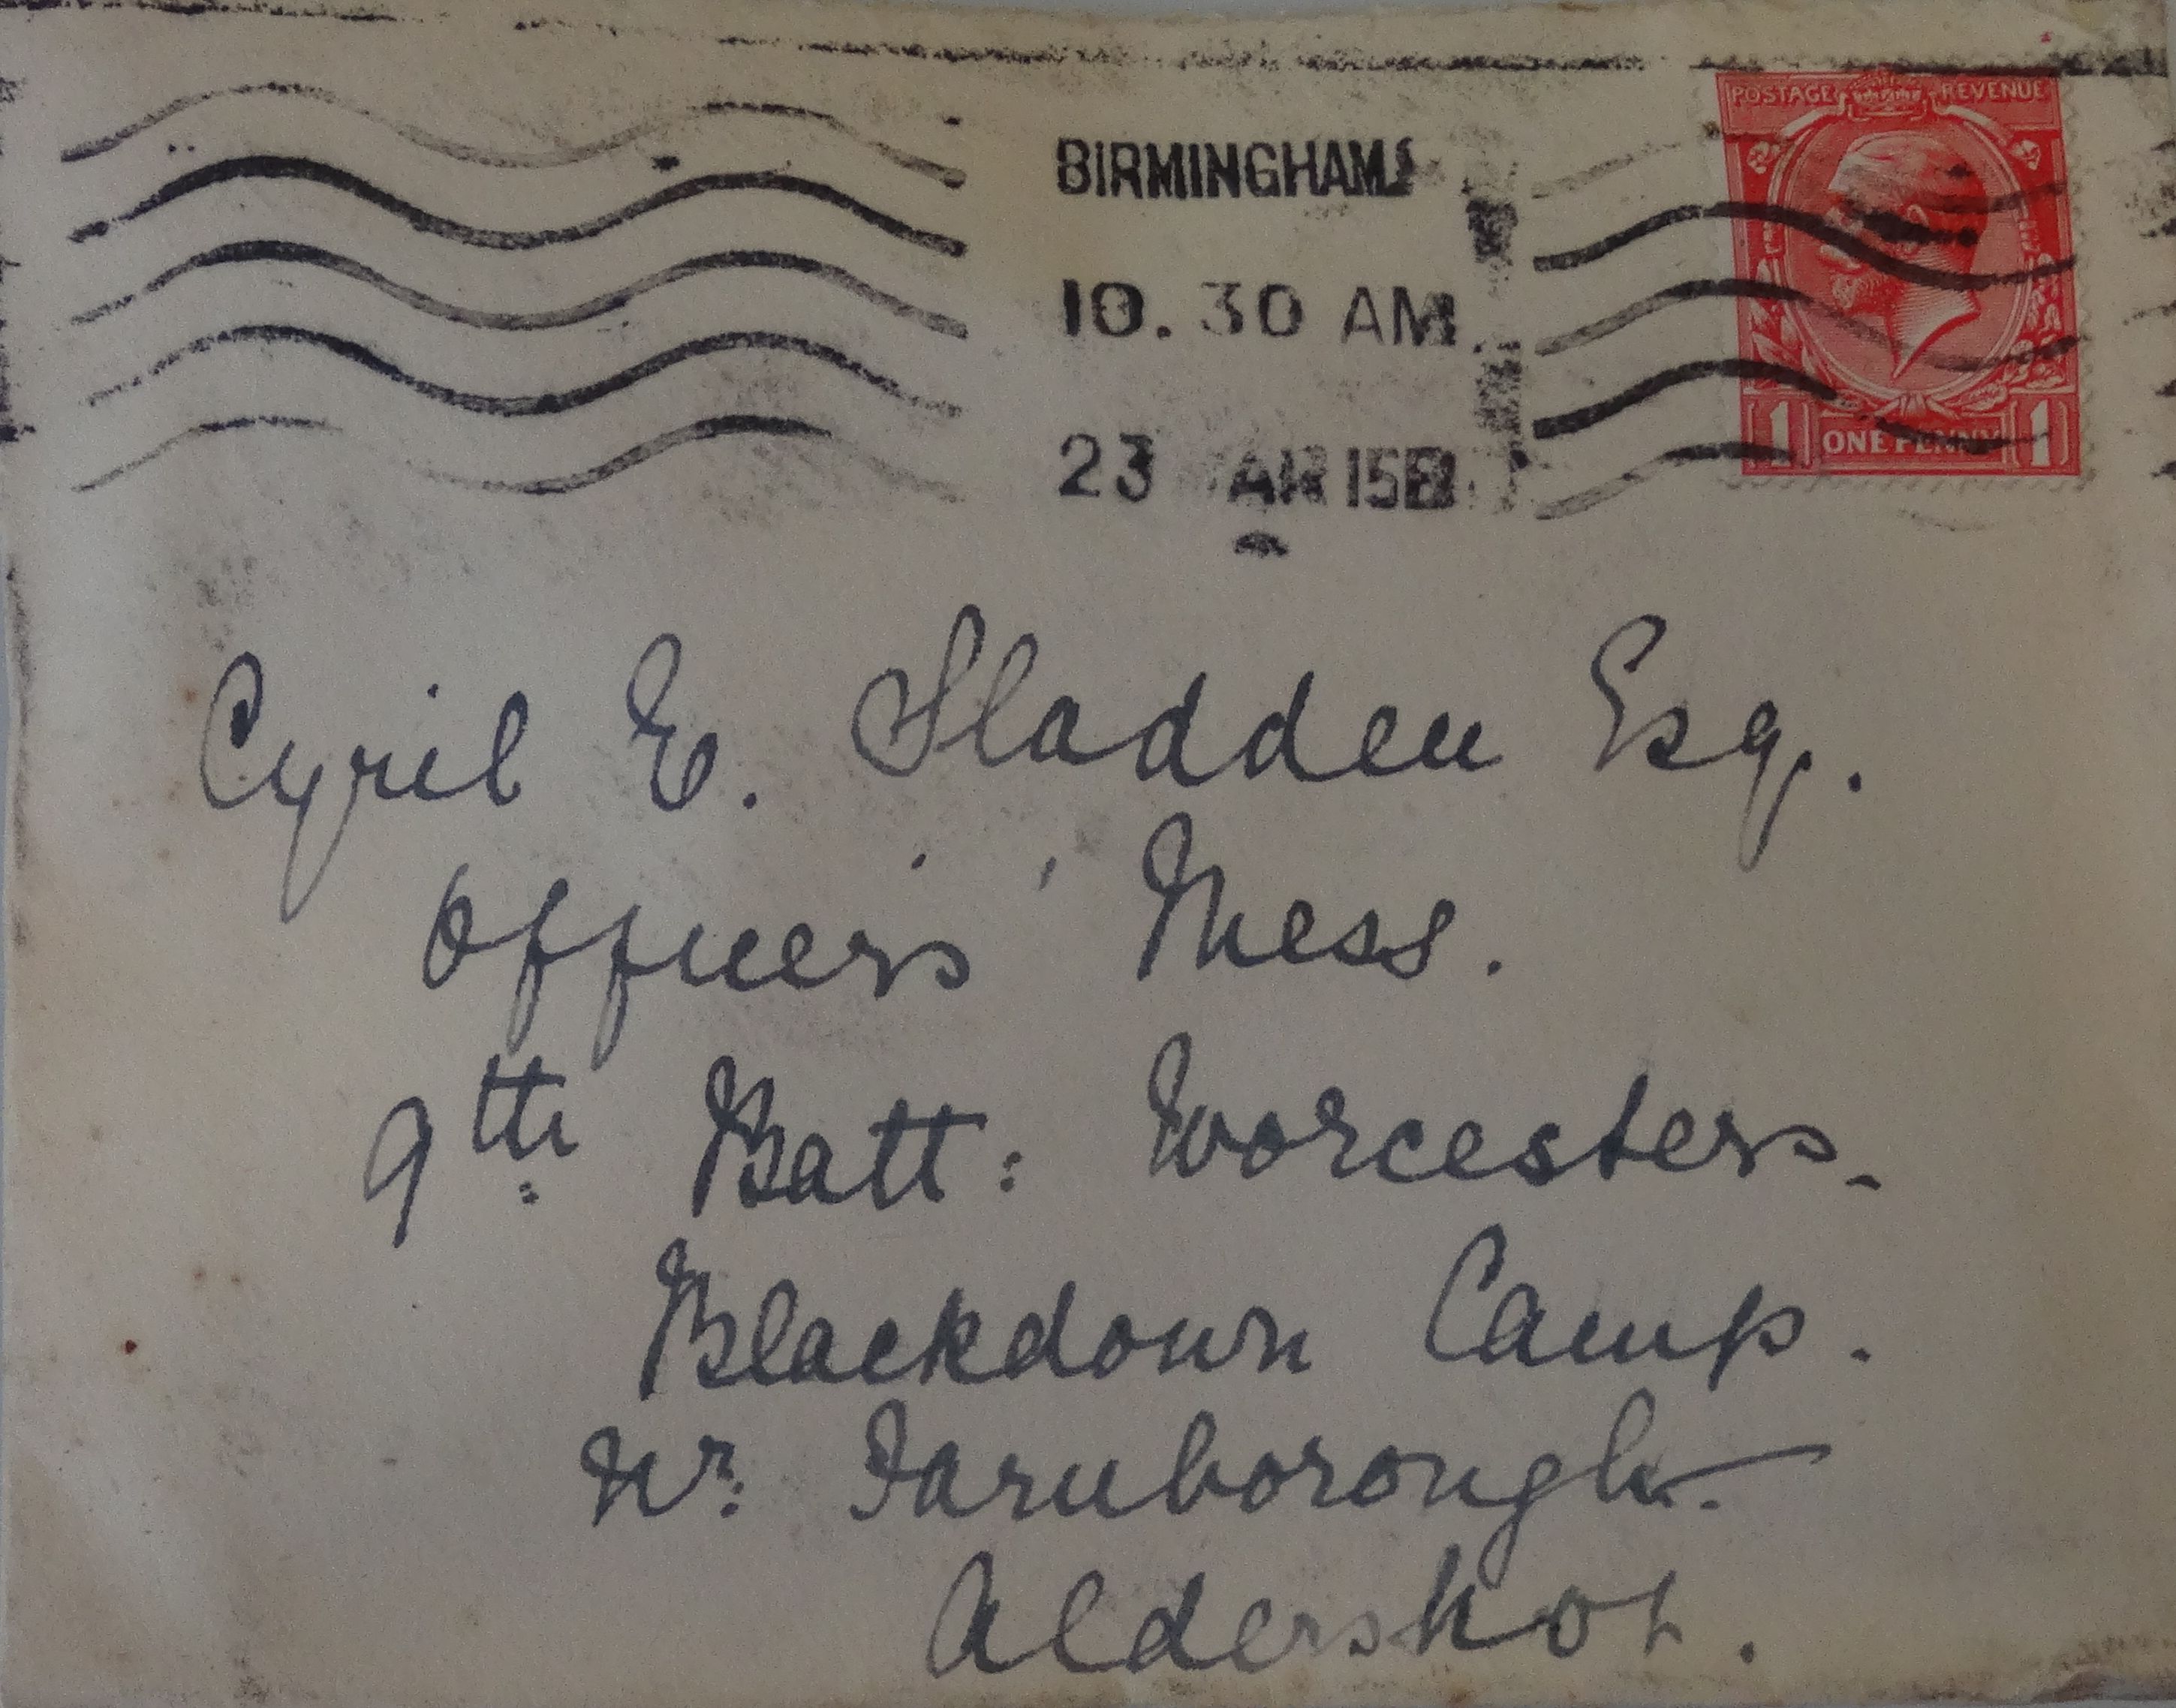 POSTAGE REVENUE
BIRMINGHAM
10. 30 AM
23 AP 15
1 ONE PENNY 1
Cyril E. Sladden Esq.
Officers' Mess.
9th Batt: Worcesters.
Blackdown Camp.
Nr. Farnborough.
Aldershot.